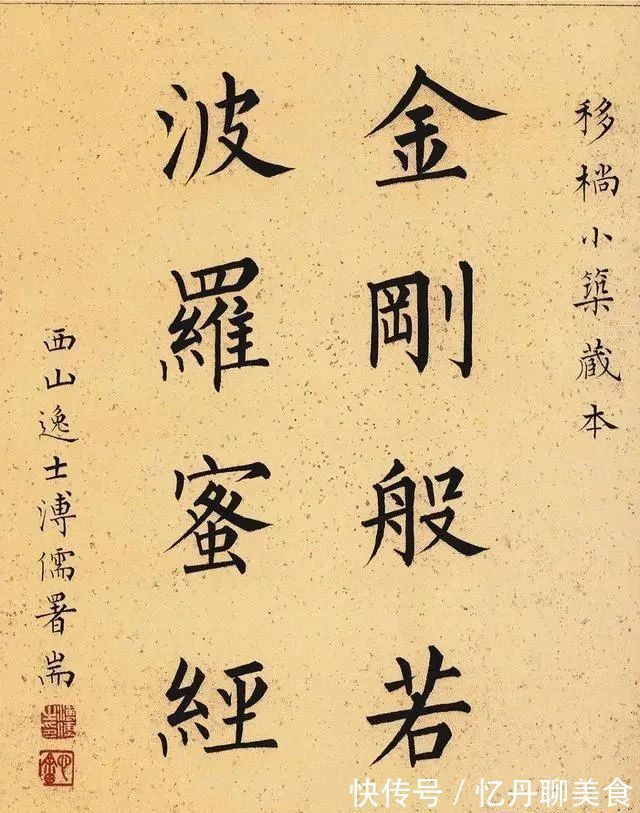 移小築蔵本
金剛般若
波羅蜜經
西山逸士溥儒署耑
溥儒之印
心畬
快传号/忆丹聊美食